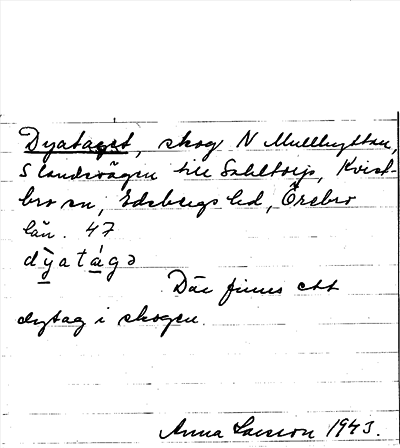 Dyataget, skog N Mullhyttan,
S landsvägen till Sahltorp, Kvist-
bro sn, Edsbergs hd, Örebro
län. 47
dỳatágə
Där finns ett
dytag i skogen.
Anna Larsson 1943.